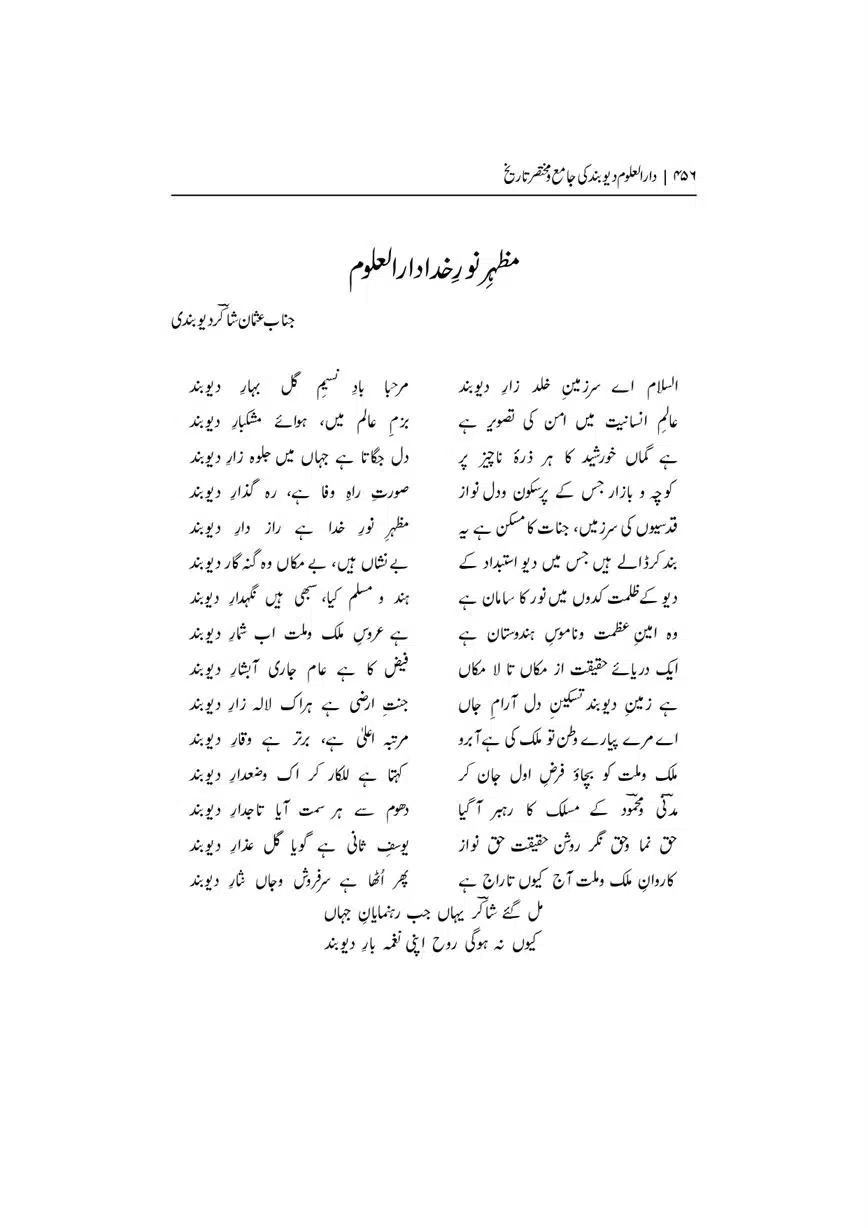 ۴۵۶ | دارالعلوم دیوبند کی جامع و مختصر تاریخ
مظہرِ نورِ خدا دارالعلوم
جناب عثمان شاکرؔ دیوبندی
السلام اے سرزمینِ خلد زارِ دیوبند مرحبا بادِ نسیمِ گل بہارِ دیوبند
عالمِ انسانیت میں امن کی تصویر ہے بزمِ عالم میں، ہوائے مشکبارِ دیوبند
ہے گماں خورشید کا ہر ذرۂ ناچیز پر دل جگاتا ہے جہاں میں جلوہ زارِ دیوبند
کوچہ و بازار جس کے پرسکون ودل نواز صورتِ راہِ وفا ہے، رہ گذارِ دیوبند
قدسیوں کی سرزمیں، جنات کا مسکن ہے یہ مظہرِ نورِ خدا ہے راز دارِ دیوبند
بند کرڈالے ہیں جس میں دیو استبداد کے بے نشاں ہیں، بے مکاں وہ گنہ گار دیوبند
دیو کے ظلمت کدوں میں نور کا سامان ہے ہند و مسلم کیا، سبھی ہیں نگہدارِ دیوبند
وہ امینِ عظمت وناموسِ ہندوستان ہے ہے عروسِ ملک وملت اب شمارِ دیوبند
ایک دریائے حقیقت از مکاں تا لا مکاں فیض کا ہے عام جاری آبشارِ دیوبند
ہے زمینِ دیوبند تسکینِ دل آرامِ جاں جنتِ ارضی ہے ہراک لالہ زارِ دیوبند
اے مرے پیارے وطن تو ملک کی ہے آبرو مرتبہ اعلیٰ ہے، برتر ہے وقارِ دیوبند
ملک وملت کو بچاؤ فرضِ اول جان کر کہتا ہے للکار کر اک وضعدارِ دیوبند
مدنیؔ ومحمودؔ کے مسلک کا رہبر آگیا دھوم سے ہر سمت آیا تاجدارِ دیوبند
حق نما وحق نگر روشن حقیقت حق نواز یوسفِ ثانی ہے گویا گل عذارِ دیوبند
کاروانِ ملک وملت آج کیوں تاراج ہے پھر اُٹھا ہے سرفروش وجاں نثارِ دیوبند
مل گئے شاکرؔ یہاں جب رہنمایانِ جہاں
کیوں نہ ہوگی روح اپنی نغمہ بارِ دیوبند